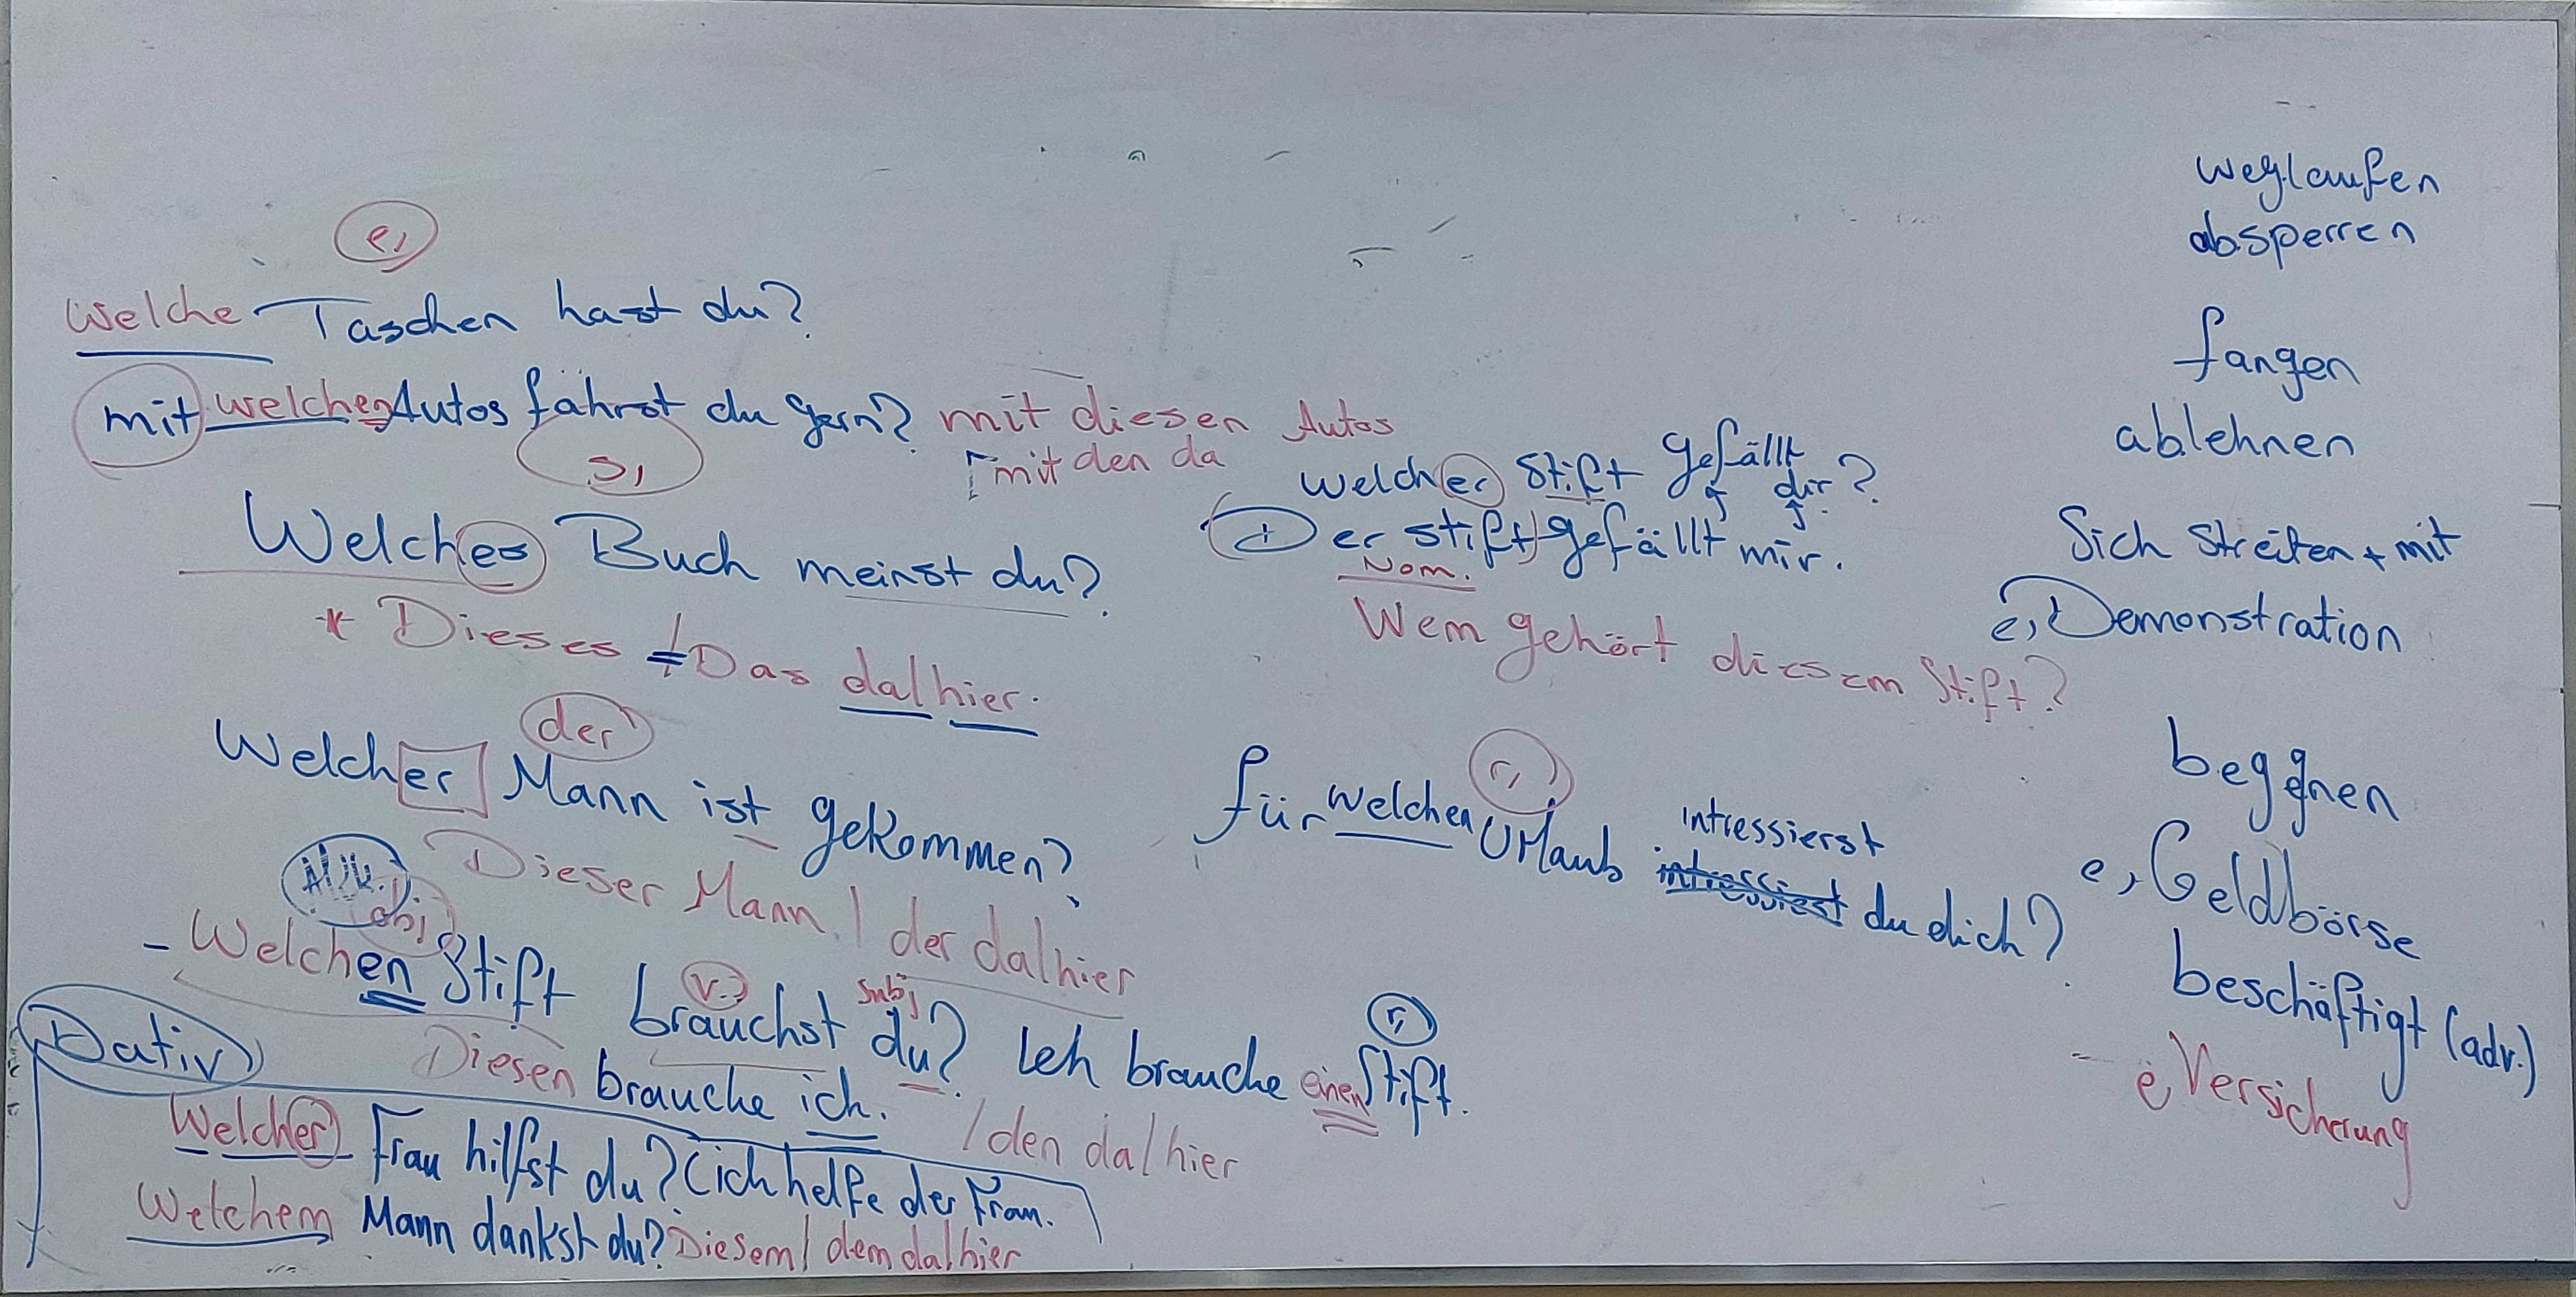 e,
Welche Taschen hast du?
mit welchen Autos fährst du gern? mit diesen Autos
s,
mit den da
Welches Buch meinst du?
* Dieses ≠ Das da/hier.
der
Welcher Mann ist gekommen?
Dieser Mann / der da/hier
Akk.
obj
- Welchen Stift brauchst du? Ich brauche einen Stift.
v.
subj
r,
Diesen brauche ich. / den da/hier
Dativ
Welcher Frau hilfst du? (ich helfe der Frau.
Welchem Mann dankst du? Diesem / dem da/hier
welcher Stift gefällt dir?
Der stift gefällt mir.
Nom.
Wem gehört diesem Stift?
r,
für welchen Urlaub intressierst du dich?
weglaufen
absperren
fangen
ablehnen
Sich streiten + mit
e, Demonstration
begegnen
e, Geldbörse
beschäftigt (adv.)
- e Versicherung